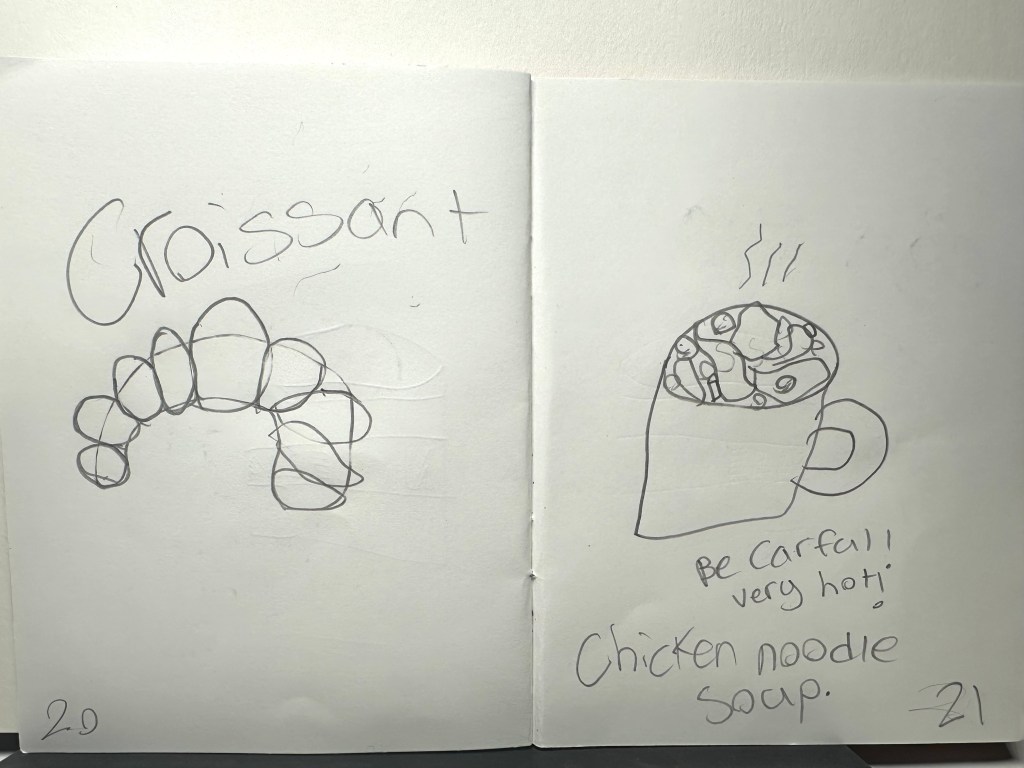 Croissant
20
Be Carfall
very hot!
Chicken noodle
soup.
21